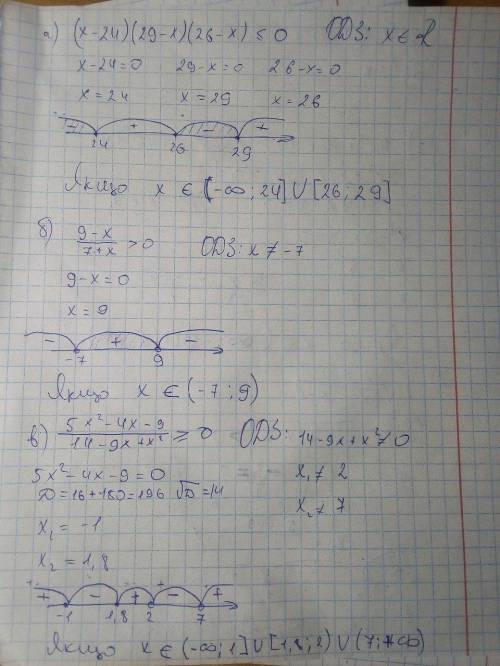 а) (x-24)(29-x)(26-x) ≤ 0 ОДЗ: x ∈ R
x-24=0 29-x=0 26-x=0
x=24 x=29 x=26
- + - +
24 26 29
Якщо x ∈ (-∞; 24] ∪ [26; 29]
б) (9-x)/(7+x) > 0 ОДЗ: x ≠ -7
9-x=0
x=9
- + -
-7 9
Якщо x ∈ (-7; 9)
в) (5x²-4x-9)/(14-9x+x²) ≥ 0 ОДЗ: 14-9x+x² ≠ 0
5x²-4x-9=0 x₁ ≠ 2
D=16+180=196 √D=14 x₂ ≠ 7
x₁ = -1
x₂ = 1,8
+ - + - +
-1 1,8 2 7
Якщо x ∈ (-∞; 1] ∪ [1,8; 2) ∪ (7; +∞)